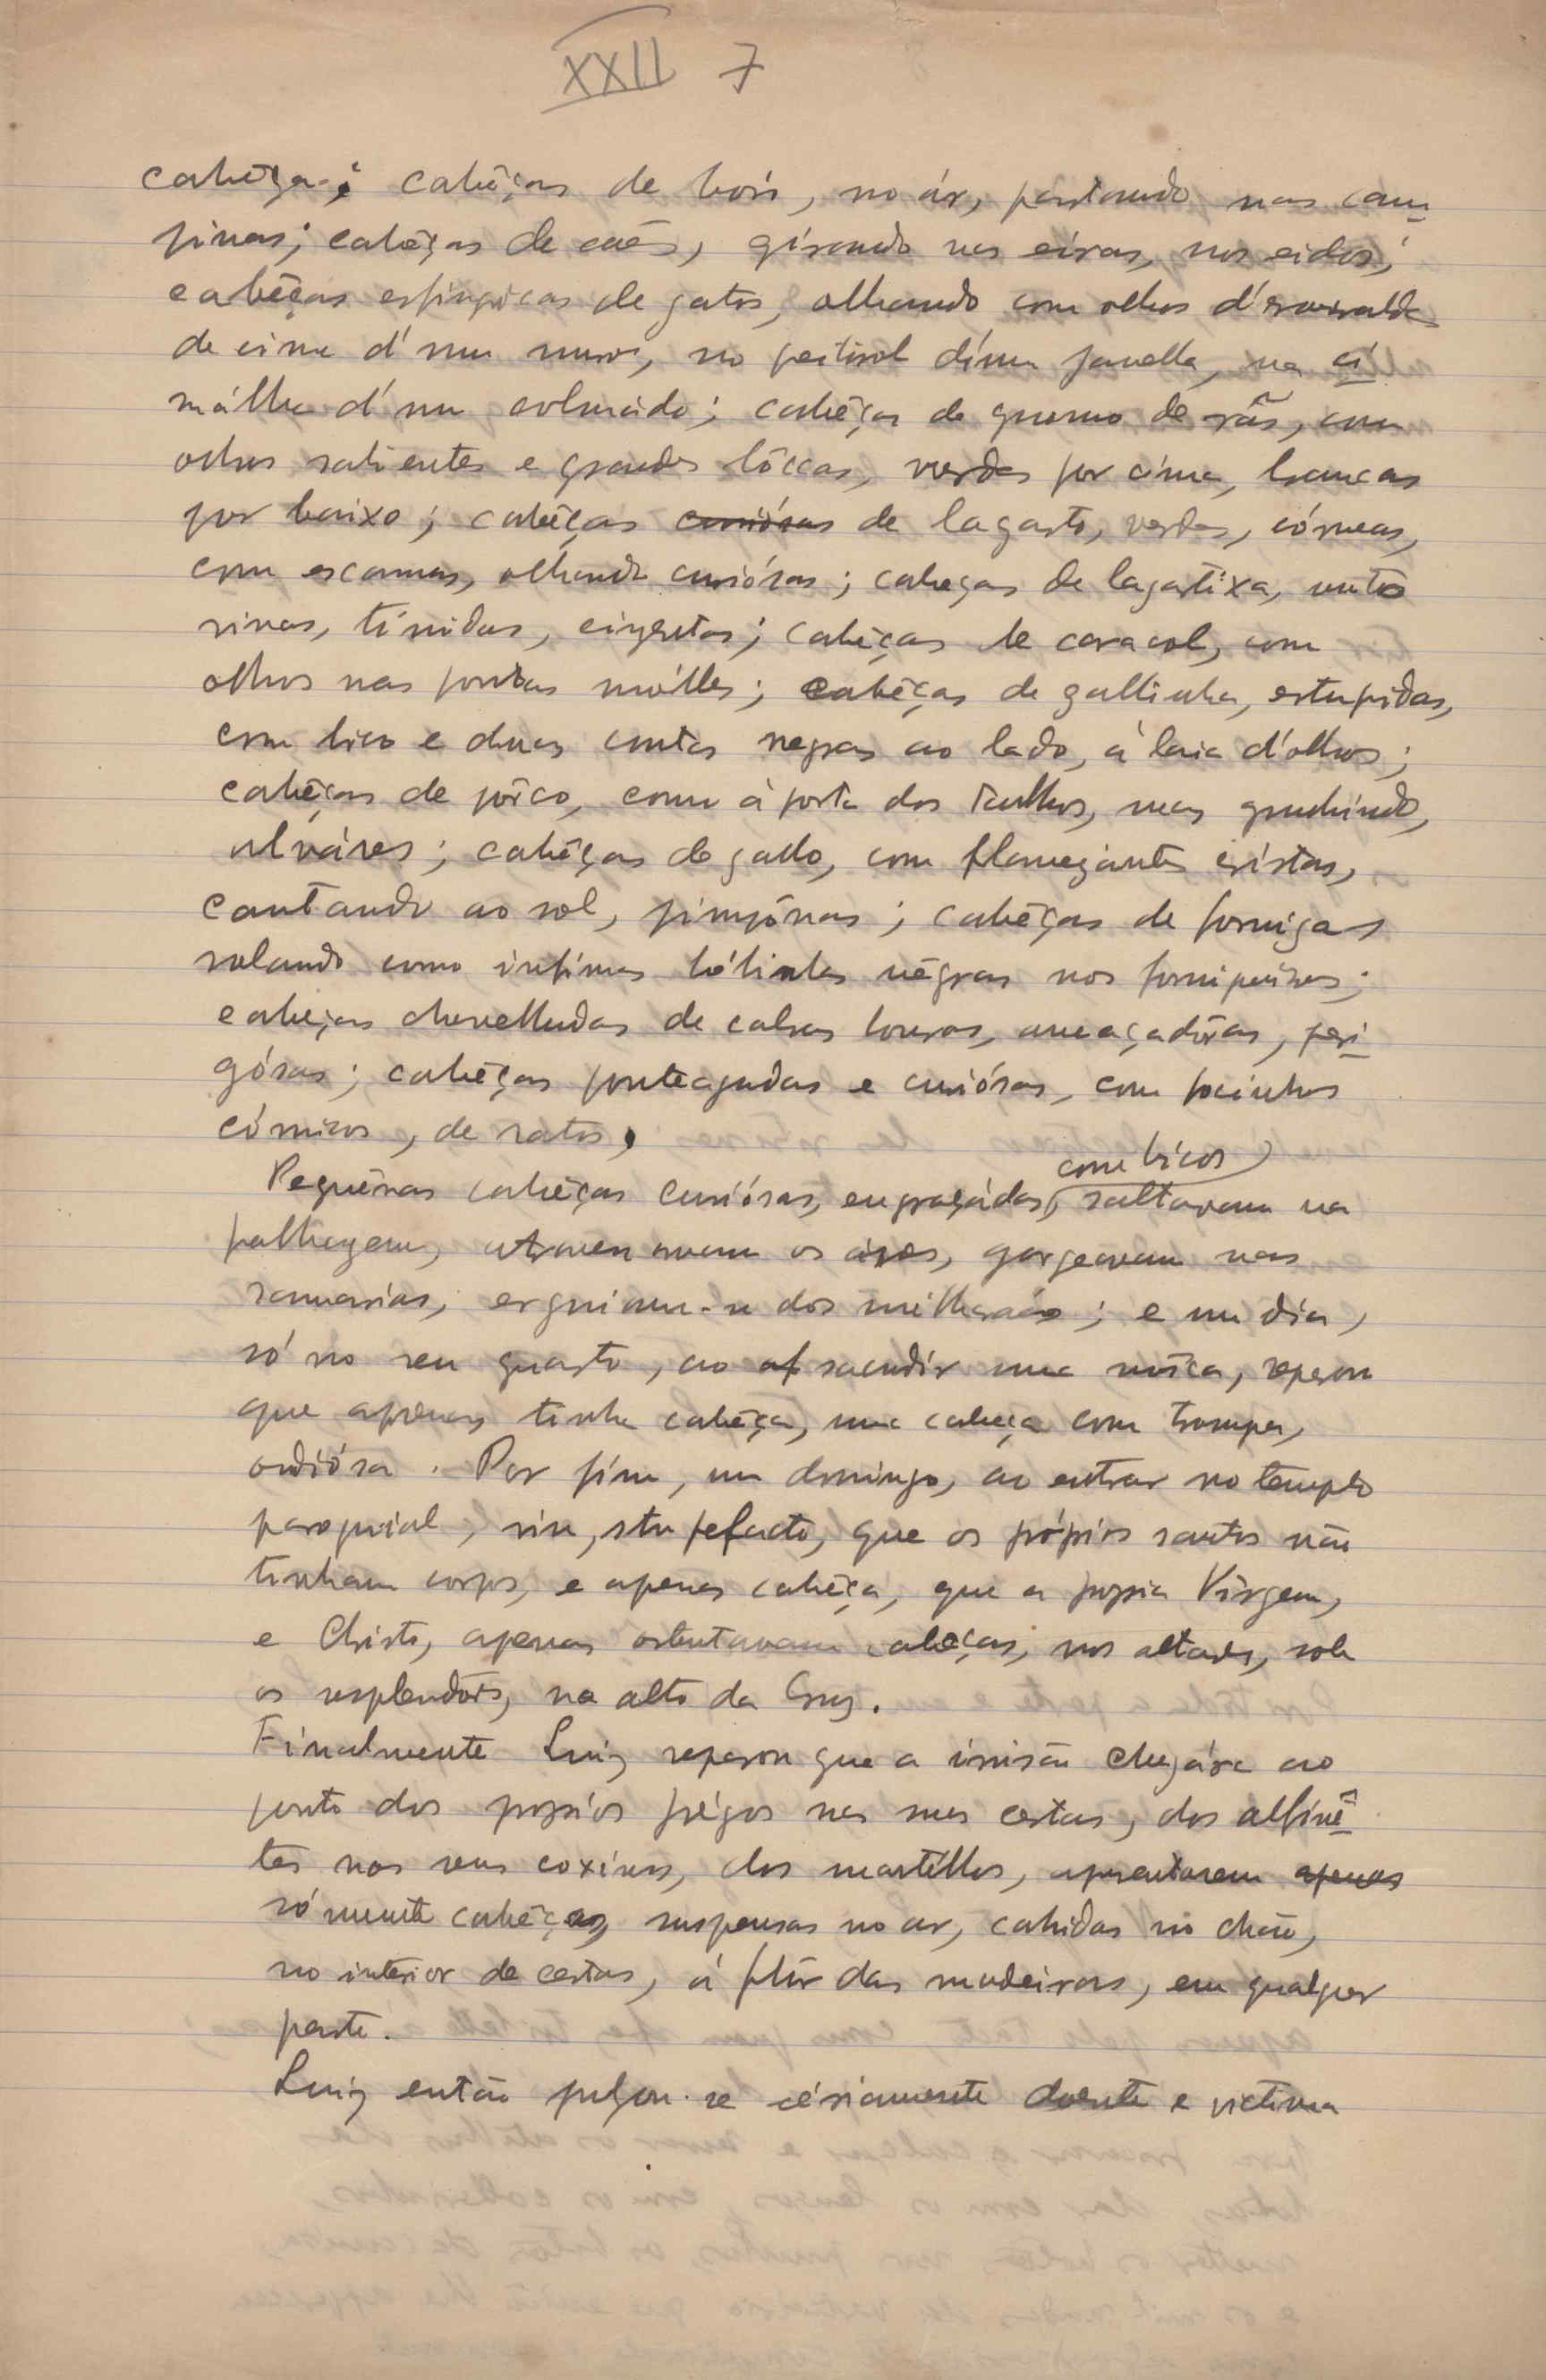 XXII 7
cabêça; cabêças de bois, no ár, pastando nas cam-
pinas; cabêças de cães, girando nas eiras, nos eidos;
cabêças esfingicas de gatos, olhando com olhos d'esmeralda
de cima d'um muro, no peitoril d'uma janella, na ci-
málha d'um eclunado; cabêças de gnomo de rãs, com
olhos salientes e grandes bôccas, verdes por cima, brancas
por baixo; cabêças curiósas de lagarto, verdes, córneas,
com escamas, olhando curiósas; cabeças de lagartixa, muito
vivas, tímidas, cinzentas; cabêças de caracol, com
olhos nas pontas mólles; cabêças de gallinha, estupidas,
com bico e duas contas negras ao lado, á laia d'olhos;
cabêças de pôrco, como á porta dos talhos, mas grunhindo,
alváres; cabêças de gallo, com flamejantes cristas,
cantando ao sol, pimpônas; cabêças de formigas
rolando como infimas bólinhas négras nos formigueiros;
cabeças chavelhudas de cabras louras, ameaçadôras, peri-
gósas; cabêças ponteagudas e curiósas, com focinhos
cómicos, de ratos.
Pequênas cabêças curiósas, engraçádas, com bicos, saltavam na
folhagem, atravessavam os áres, gorgeavam nas
ramarias, erguiam-se dos milharáes; e um dia,
só no seu quarto, ao af sacudir uma môsca, reparou
que apenas tinha cabêça, uma cabeça com trompa,
odiósa. Por fim, um domingo, ao entrar no templo
paroquial, viu, stupefacto, que os própios santos não
tinham corpo, e apenas cabêça, que a propia Virgem,
e Christo, apenas ostentavam cabeças, nos altares, sob
os resplendôres, no alto da Cruz.
Finalmente Luiz reparou que a irrisão chegára ao
ponto dos proprios prégos nas suas cestas, dos alfinê-
tes nos seus coxins, dos martéllos, apresentarem apenas
sómente cabêças, suspensas no ar, cahidas no chão,
no interior de cestas, á flôr das madeiras, em qualquer
parte.
Luiz então julgou-se sériamente doente e victima